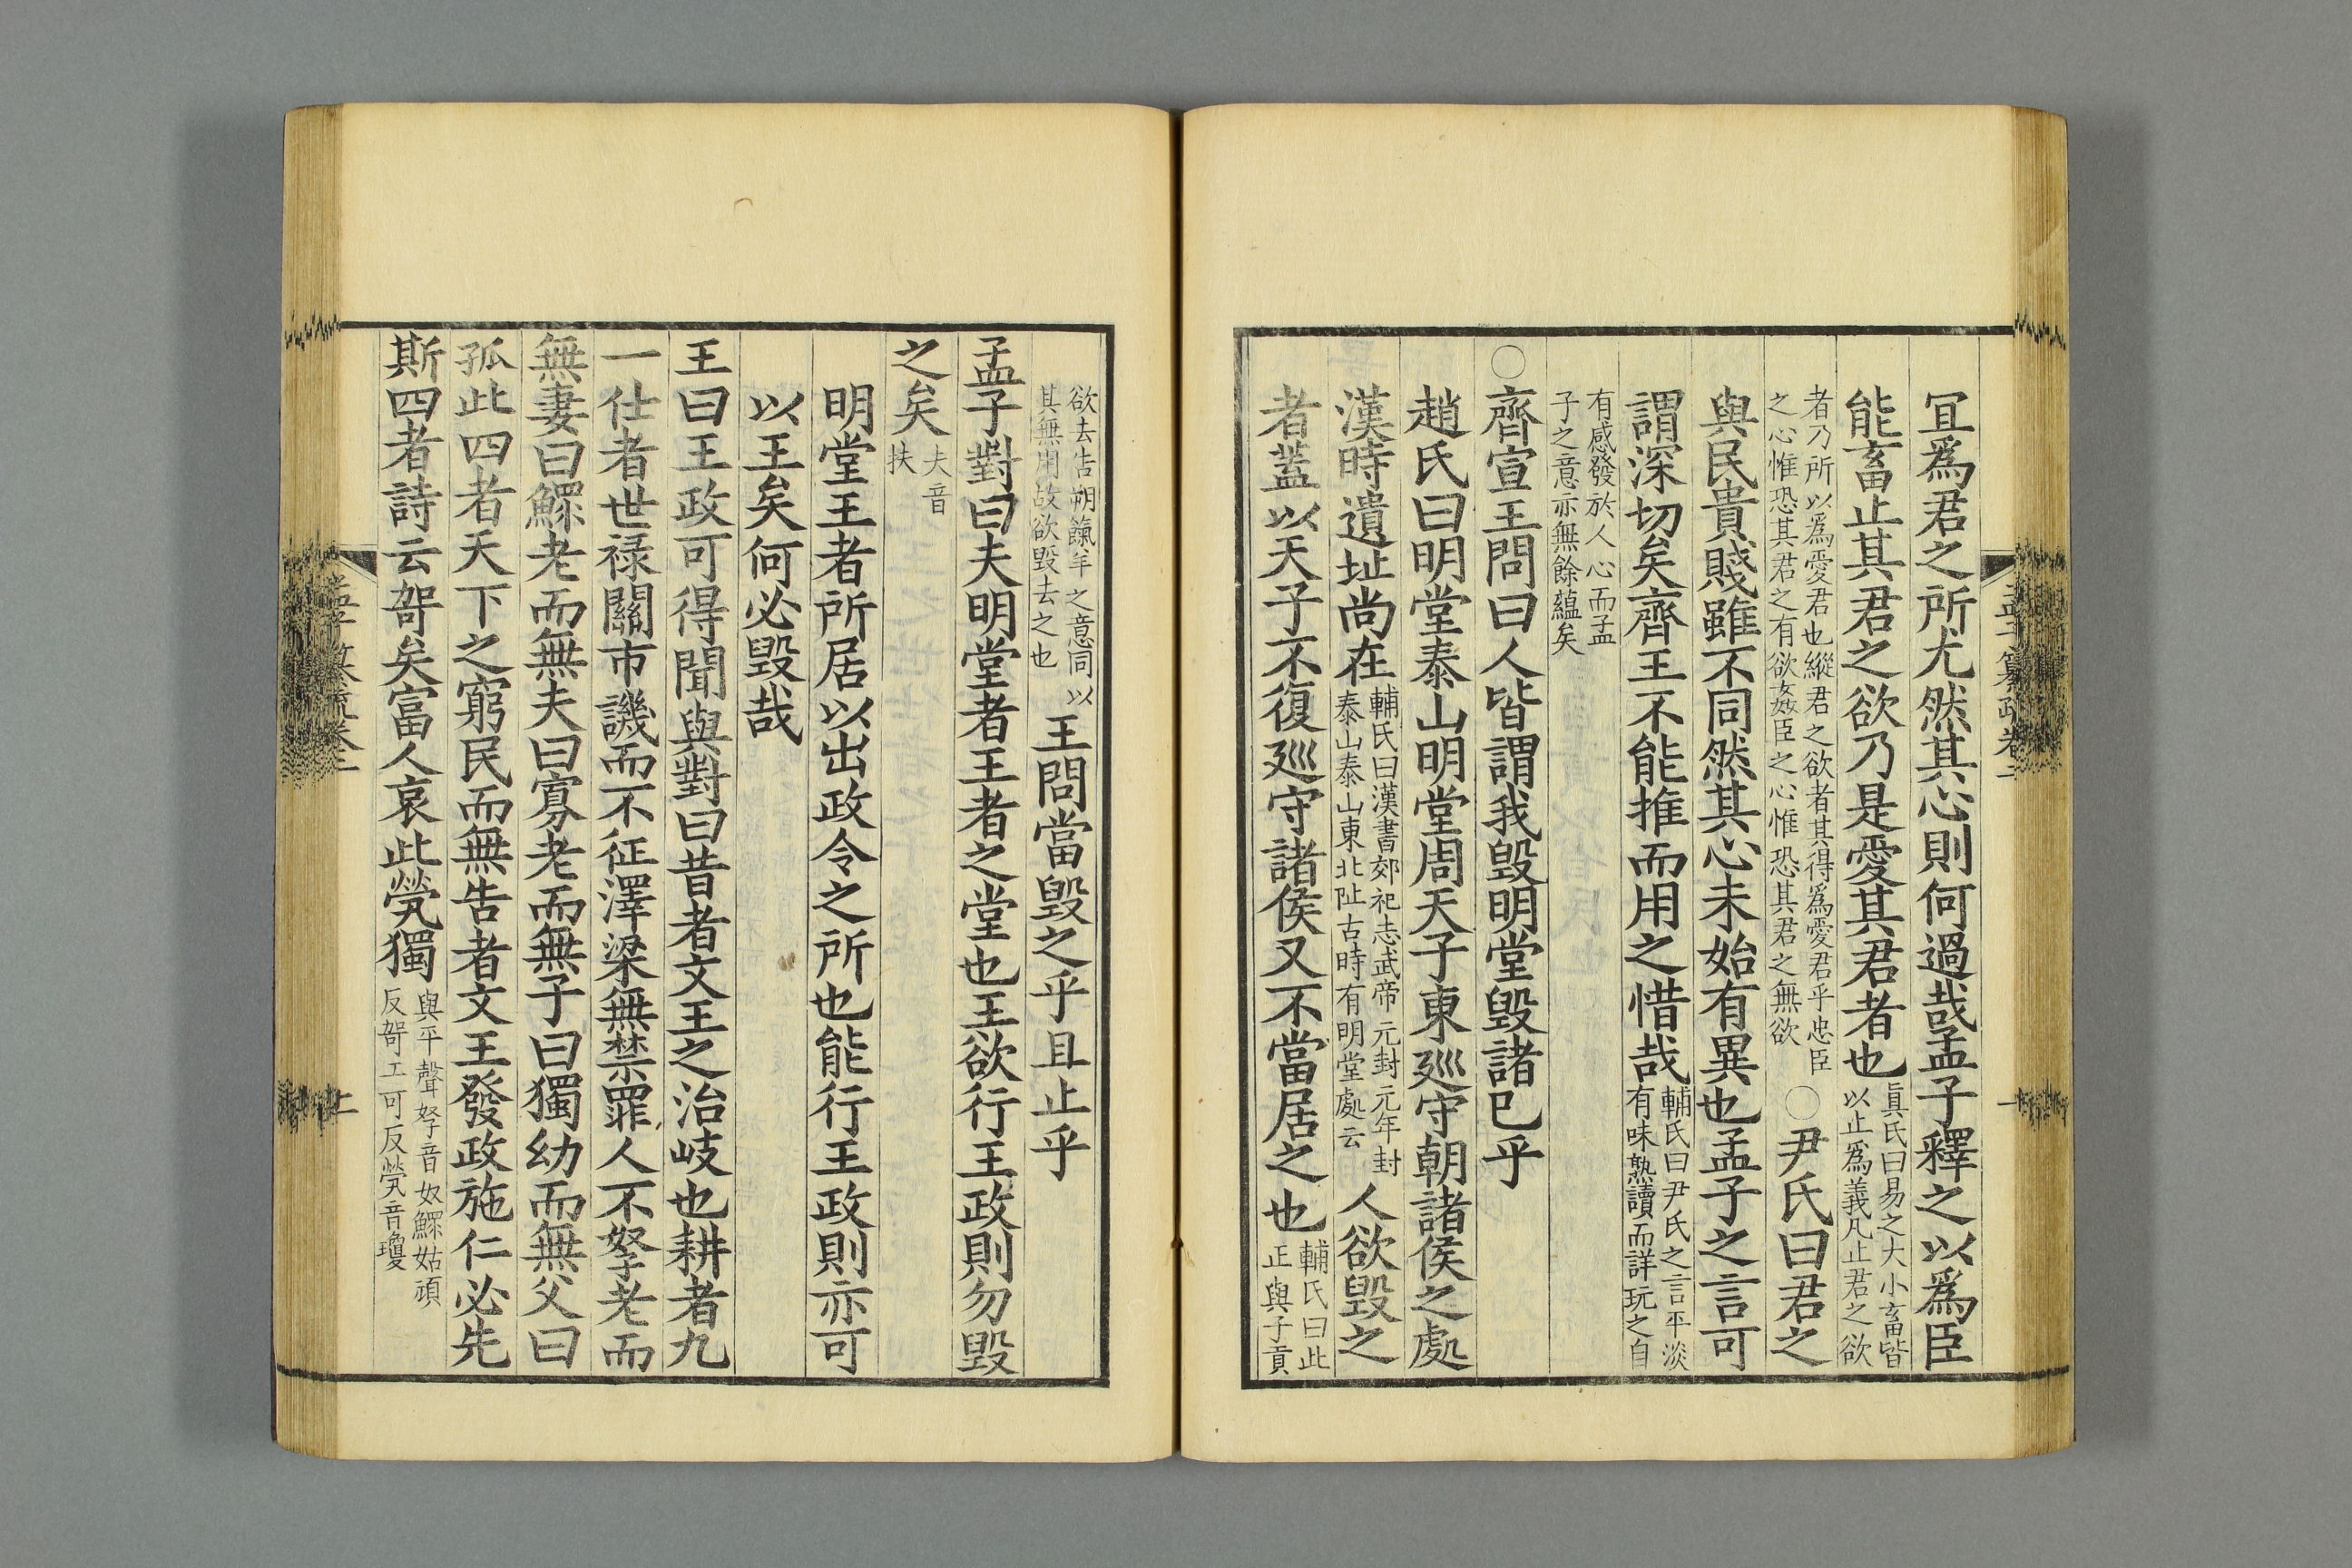 冝爲君之所尤然其心則何過哉孟子釋之以爲臣
能畜止其君之欲乃是愛其君者也眞氏曰易之大小畜皆以止爲義凡止君之欲
者乃所以爲愛君也縱君之欲者其得爲愛君乎忠臣之心惟恐其君之有欲姦臣之心惟恐其君之無欲○尹氏曰君之
與民貴賤雖不同然其心未始有異也孟子之言可
謂深切矣齊王不能推而用之惜哉輔氏曰尹氏之言平淡有味熟讀而詳玩之自
有感發於人心而孟子之意亦無餘蘊矣
○齊宣王問曰人皆謂我毁明堂毁諸已乎
趙氏曰明堂泰山明堂周天子東廵守朝諸侯之處
漢時遺址尚在輔氏曰漢書郊祀志武帝元封元年封泰山泰山東北阯古時有明堂處云人欲毁之
者蓋以天子不復廵守諸侯又不當居之也輔氏曰此正與子貢
欲去告朔餼羊之意同以其無用故欲毁去之也王問當毁之乎且止乎
孟子對曰夫明堂者王者之堂也王欲行王政則勿毁
之矣夫音扶
明堂王者所居以出政令之所也能行王政則亦可
以王矣何必毁哉
王曰王政可得聞與對曰昔者文王之治岐也耕者九
一仕者世禄關市譏而不征澤梁無禁罪人不孥老而
無妻曰鰥老而無夫曰寡老而無子曰獨幼而無父曰
孤此四者天下之窮民而無告者文王發政施仁必先
斯四者詩云哿矣富人哀此煢獨與平聲孥音奴鰥姑頑反哿工可反煢音瓊